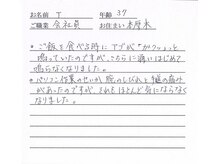 お名前 T 年齢 37
ご職業 会社員 お住まい 本厚木
・ご飯を食べる時にアゴがカクッと
鳴っていたのですが、こちらに通いはじめて
鳴らなくなりました。
・パソコン作業のせいか腕のしびれと腰の痛み
があったのですが、それもほとんど気にならなく
なりました。